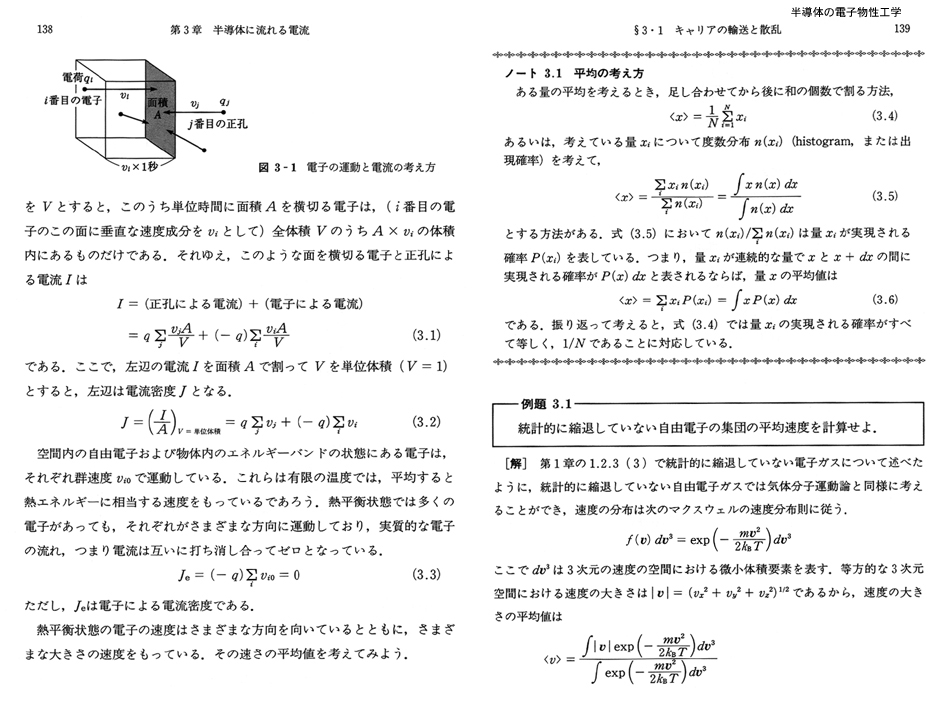 半導体の電子物性工学
138 第3章 半導体に流れる電流
電荷qi
i番目の電子
vi
面積
A
vj qj
j番目の正孔
vi×1秒
図 3-1 電子の運動と電流の考え方
を V とすると，このうち単位時間に面積 A を横切る電子は，( i 番目の電
子のこの面に垂直な速度成分を vi として) 全体積 V のうち A × vi の体積
内にあるものだけである．それゆえ，このような面を横切る電子と正孔によ
る電流 I は
I = (正孔による電流) + (電子による電流)
= q Σj vjA/V + (− q) Σi viA/V (3.1)
である．ここで，左辺の電流 I を面積 A で割って V を単位体積 ( V = 1)
とすると，左辺は電流密度 J となる．
J = (I/A)V = 単位体積 = q Σj vj + (− q) Σi vi (3.2)
空間内の自由電子および物体内のエネルギーバンドの状態にある電子は，
それぞれ群速度 vi0 で運動している．これらは有限の温度では，平均すると
熱エネルギーに相当する速度をもっているであろう．熱平衡状態では多くの
電子があっても，それぞれがさまざまな方向に運動しており，実質的な電子
の流れ，つまり電流は互いに打ち消し合ってゼロとなっている．
Je = (− q) Σi vi0 = 0 (3.3)
ただし，Jeは電子による電流密度である．
熱平衡状態の電子の速度はさまざまな方向を向いているとともに，さまざ
まな大きさの速度をもっている．その速さの平均値を考えてみよう．
§3・1 キャリアの輸送と散乱 139
ノート 3.1 平均の考え方
ある量の平均を考えるとき，足し合わせてから後に和の個数で割る方法，
<x> = 1/N Σ_{i=1}^{N} xi (3.4)
あるいは，考えている量 xi について度数分布 n(xi) (histogram，または出
現確率) を考えて，
<x> = Σi xi n(xi) / Σi n(xi) = ∫x n(x) dx / ∫n(x) dx (3.5)
とする方法がある．式 (3.5) において n(xi)/Σi n(xi) は量 xi が実現される
確率 P(xi) を表している．つまり，量 xi が連続的な量で x と x + dx の間に
実現される確率が P(x) dx と表されるならば，量 x の平均値は
<x> = Σi xi P(xi) = ∫x P(x) dx (3.6)
である．振り返って考えると，式 (3.4) では量 xi の実現される確率がすべ
て等しく，1/N であることに対応している．
例題 3.1
統計的に縮退していない自由電子の集団の平均速度を計算せよ．
［解］ 第1章の1.2.3 (3) で統計的に縮退していない電子ガスについて述べた
ように，統計的に縮退していない自由電子ガスでは気体分子運動論と同様に考え
ることができ，速度の分布は次のマクスウェルの速度分布則に従う．
f(v) dv³ = exp(− mv²/2kBT) dv³
ここで dv³ は3次元の速度の空間における微小体積要素を表す．等方的な3次元
空間における速度の大きさは |v| = (vx² + vy² + vz²)^1/2 であるから，速度の大き
さの平均値は
<v> = ∫|v| exp(− mv²/2kBT) dv³ / ∫exp(− mv²/2kBT) dv³